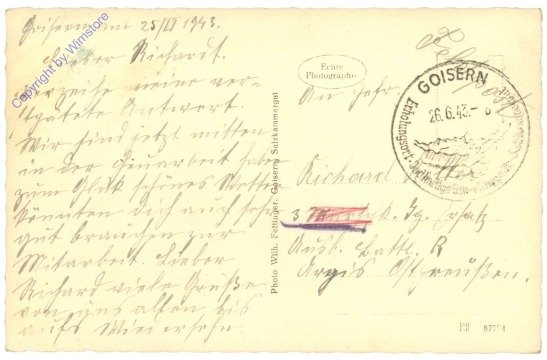 Goisern am 25/II 1943.
Lieber Richardt.
Verzeihe meine ver-
spätete Antwort.
Wir sind jetzt mitten
in der Heuarbeit haben
zum Glük schönes Wetter
könnten dich auch sehr
gut brauchen zur
Mitarbeit. Lieber
Richard viele Grüße
von uns allen bis
aufs Wiedersehn.
Copyright by Wimstore
Echte
Photographie
Photo Wilh. Fettinger, Goisern Salzkammergut
Feldpost
GOISERN
26.6.43.
An Gefr.
Richard
3 Ig. Ersatz
Ausb. Batl. R
Arys Ostpreußen.